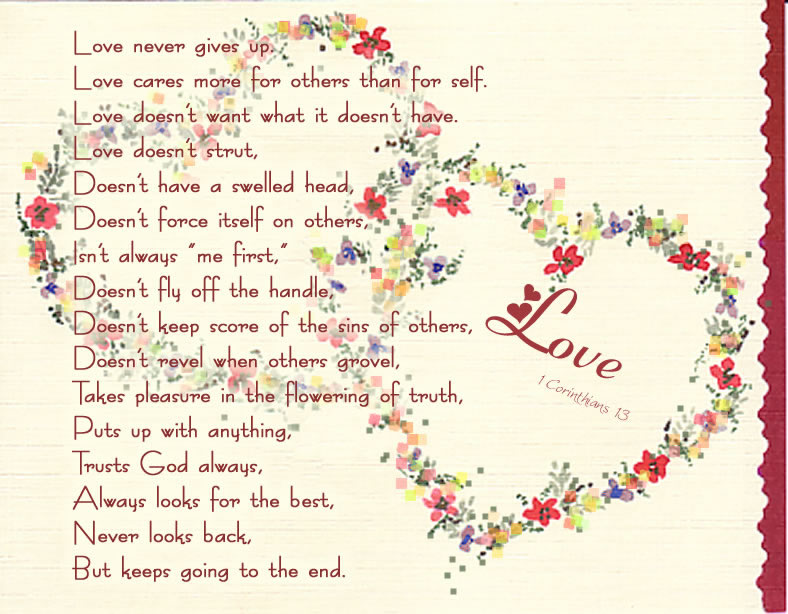 Love never gives up.
Love cares more for others than for self.
Love doesn't want what it doesn't have.
Love doesn't strut,
Doesn't have a swelled head,
Doesn't force itself on others,
Isn't always "me first,"
Doesn't fly off the handle,
Doesn't keep score of the sins of others,
Doesn't revel when others grovel,
Takes pleasure in the flowering of truth,
Puts up with anything,
Trusts God always,
Always looks for the best,
Never looks back,
But keeps going to the end.
Love
1 Corinthians 13